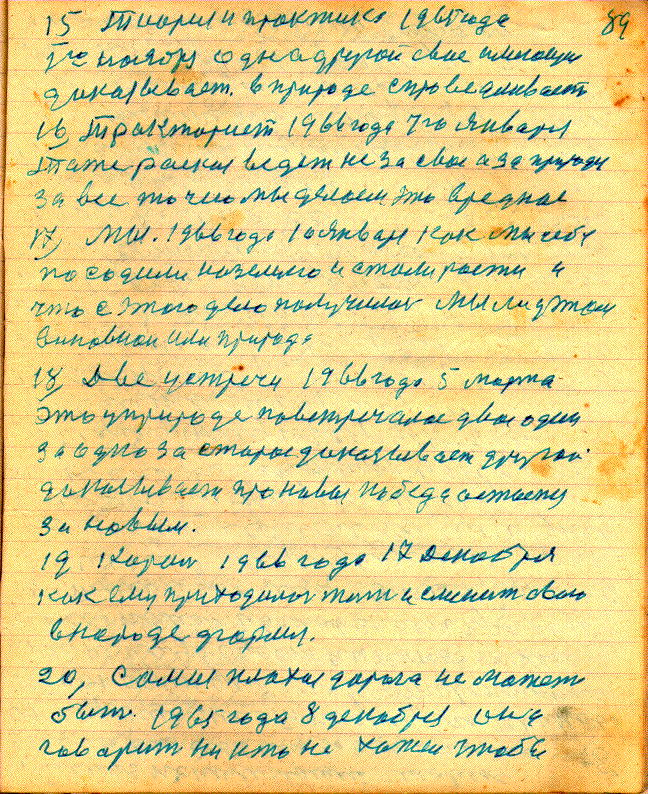 89
15 Теория и практика 1965 года
1го ноября одна другой свое имеющи
доказывает. в природе справедливаст
16, Тракторист 1966 года 7го января
Тоже расказ ведет не за свое а за природу
за все то чего мы делаем это вредное
17, Мы. 1966 года 10 января как мы себя
посодили на землю и стали рости и
что с этого дело получилос мы ли у этом
виновнои или природа
18, Две устречи 1966 года 5 марта
Это у природе повстречалос двое один
за одно за старое доказывает другой
доказывает про новое победа остается
за новым.
19 1966 года 17 декабря
как ему приходилос жит и сменит свою
в народе
20, Самая плохая дорога не может
быт. 1965 года 8 декабря она
говорит ни кто не хотел чтобы